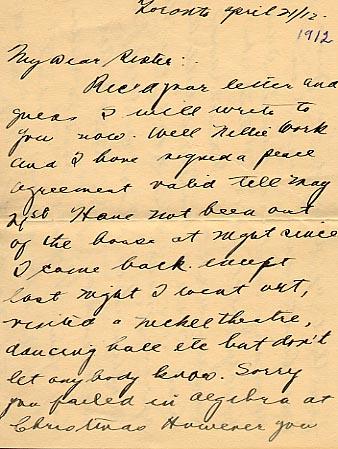 Toronto April 21/12.
1912
My Dear Sister:
Rec'd your letter and
guess I will write to
you now. Well Nellie Work
and I have signed a peace
agreement valid till May
21st Have not been out
of the house at night since
I came back. except
last night I went out,
visited a nickel theatre,
dancing hall etc but don't
let anybody know. Sorry
you failed in algebra at
Christmas However you